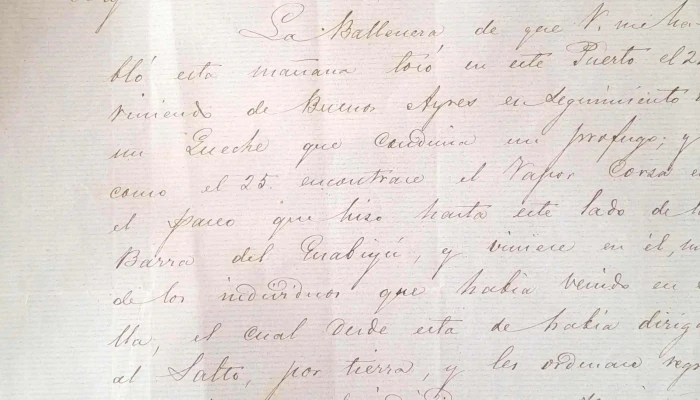 La Ballenera de que V. me ha-
bló esta mañana tocó en este Puerto el 2
viniendo de Buenos Ayres en seguimiento
un Queche que conducia un profugo; y
como el 25. encontrase el Vapor Corza en
el paseo que hiso hasta este lado de l
Barra del Guabiyú, y viniese en él,
de los individuos que habia venido en
lla, el cual desde esta se habia dirigi
al Salto, por tierra, y les ordenase regr